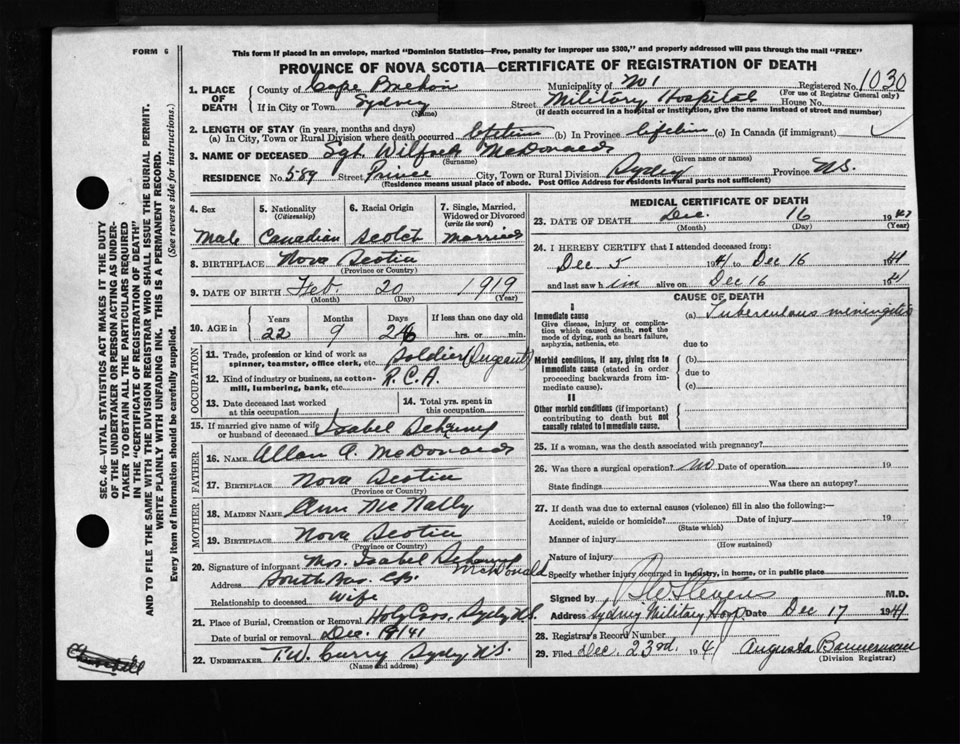 FORM 6
This form if placed in an envelope, marked "Dominion Statistics—Free, penalty for improper use $300," and properly addressed will pass through the mail "FREE"
PROVINCE OF NOVA SCOTIA—CERTIFICATE OF REGISTRATION OF DEATH
Registered No. 1030
(For use of Registrar General only)
1. PLACE OF DEATH County of Cape Breton Municipality of No 1
If in City or Town Sydney Street Military Hospital House No.
(Name) (If death occurred in a hospital or institution, give the name instead of street and number)
2. LENGTH OF STAY (in years, months and days)
(a) In City, Town or Rural Division where death occurred lifetime (b) In Province lifetime (c) In Canada (if immigrant)
3. NAME OF DECEASED Sgt Wilfred McDonald
(Surname) (Given name or names)
RESIDENCE No. 589 Street Prince City, Town or Rural Division Sydney Province N.S.
(Residence means usual place of abode. Post Office Address for residents in rural parts not sufficient)
4. Sex 5. Nationality (Citizenship) 6. Racial Origin 7. Single, Married, Widowed or Divorced (write the word)
Male Canadian Scotch Married
8. BIRTHPLACE Nova Scotia
(Province or Country)
9. DATE OF BIRTH Feb. 20 1919
(Month) (Day) (Year)
10. AGE in Years Months Days If less than one day old
22 9 26 hrs. or min.
OCCUPATION
11. Trade, profession or kind of work as spinner, teamster, office clerk, etc. Soldier
12. Kind of industry or business, as cotton-mill, lumbering, bank, etc. R.C.A.
13. Date deceased last worked at this occupation 14. Total yrs. spent in this occupation
15. If married give name of wife or husband of deceased Isabel
FATHER
16. NAME Allan A. McDonald
17. BIRTHPLACE Nova Scotia
(Province or Country)
MOTHER
18. MAIDEN NAME Ann McNally
19. BIRTHPLACE Nova Scotia
(Province or Country)
20. Signature of informant Mrs. Isabel McDonald
Address South Bar C.B.
Relationship to deceased wife
21. Place of Burial, Cremation or Removal Holy Cross, Sydney N.S.
Date of burial or removal Dec. 18/41
22. UNDERTAKER T.W. Curry Sydney N.S.
(Name and address)
MEDICAL CERTIFICATE OF DEATH
23. DATE OF DEATH Dec. 16 19
(Month) (Day) (Year)
24. I HEREBY CERTIFY that I attended deceased from:
Dec 5 1941 to Dec 16 1941
and last saw him alive on Dec 16 1941
CAUSE OF DEATH
I
Immediate cause (a) Tuberculous meningitis
Give disease, injury or complication which caused death, not the mode of dying, such as heart failure, asphyxia, asthenia, etc.
due to
Morbid conditions, if any, giving rise to immediate cause (stated in order proceeding backwards from immediate cause).
(b)
due to
(c)
II
Other morbid conditions (if important) contributing to death but not causally related to immediate cause.
25. If a woman, was the death associated with pregnancy?
26. Was there a surgical operation? No Date of operation 19
State findings Was there an autopsy?
27. If death was due to external causes (violence) fill in also the following:—
Accident, suicide or homicide? Date of injury 19
(State which)
Manner of injury
(How sustained)
Nature of injury
Specify whether injury occurred in industry, in home, or in public place
Signed by M.D.
Address Sydney Military Hosp Date Dec 17 1941
28. Registrar's Record Number
29. Filed Dec. 23rd. 1941 Augusta Bannerman
(Division Registrar)
SEC. 46—VITAL STATISTICS ACT MAKES IT THE DUTY
OF THE UNDERTAKER OR PERSON ACTING AS UNDER-
TAKER TO OBTAIN ALL THE PARTICULARS REQUIRED
IN THE "CERTIFICATE OF REGISTRATION OF DEATH"
AND TO FILE THE SAME WITH THE DIVISION REGISTRAR WHO SHALL ISSUE THE BURIAL PERMIT.
WRITE PLAINLY WITH UNFADING INK. THIS IS A PERMANENT RECORD.
Every item of information should be carefully supplied. (See reverse side for instructions.)